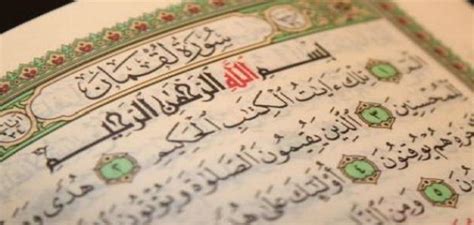 سُورَةُ لُقْمَان
بِسْمِ اللَّهِ الرَّحْمَٰنِ الرَّحِيمِ
الٓمٓ ١ تِلْكَ ءَايَٰتُ الْكِتَٰبِ الْحَكِيمِ ٢ هُدًى
لِّلْمُحْسِنِينَ ٣ الَّذِينَ يُقِيمُونَ الصَّلَوٰةَ وَيُؤْتُونَ
هُمْ يُوقِنُونَ ٤ أُوْلَٰٓئِكَ عَلَىٰ
٥ وَمِنَ النَّاسِ